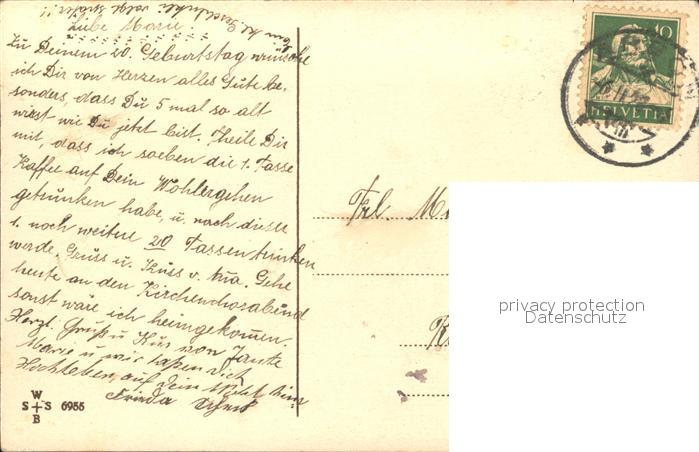 Liebe Marie!
Zu Deinem 20. Geburtstag wünsche
ich Dir von Herzen alles Gute be-
sonders, dass Du 5 mal so alt
wirst wie Du jetzt bist. Theile Dir
mit, dass ich soeben die 1. Tasse
Kaffee auf Dein Wohlergehen
getrunken habe, u. nach dieser
1. noch weitere 20 Tassen trinken
werde. Gruss u. Kuss v. Gehe
heute an den Kirchenchorabend
sonst wäre ich heimgekommen.
Herzl. Gruß u. Kuss von Tante
Marie u. wir lassen Dich
Hochleben, auf Dein
Frieda
Frl.
HELVETIA
10
privacy protection
Datenschutz
W
S S 6956
B